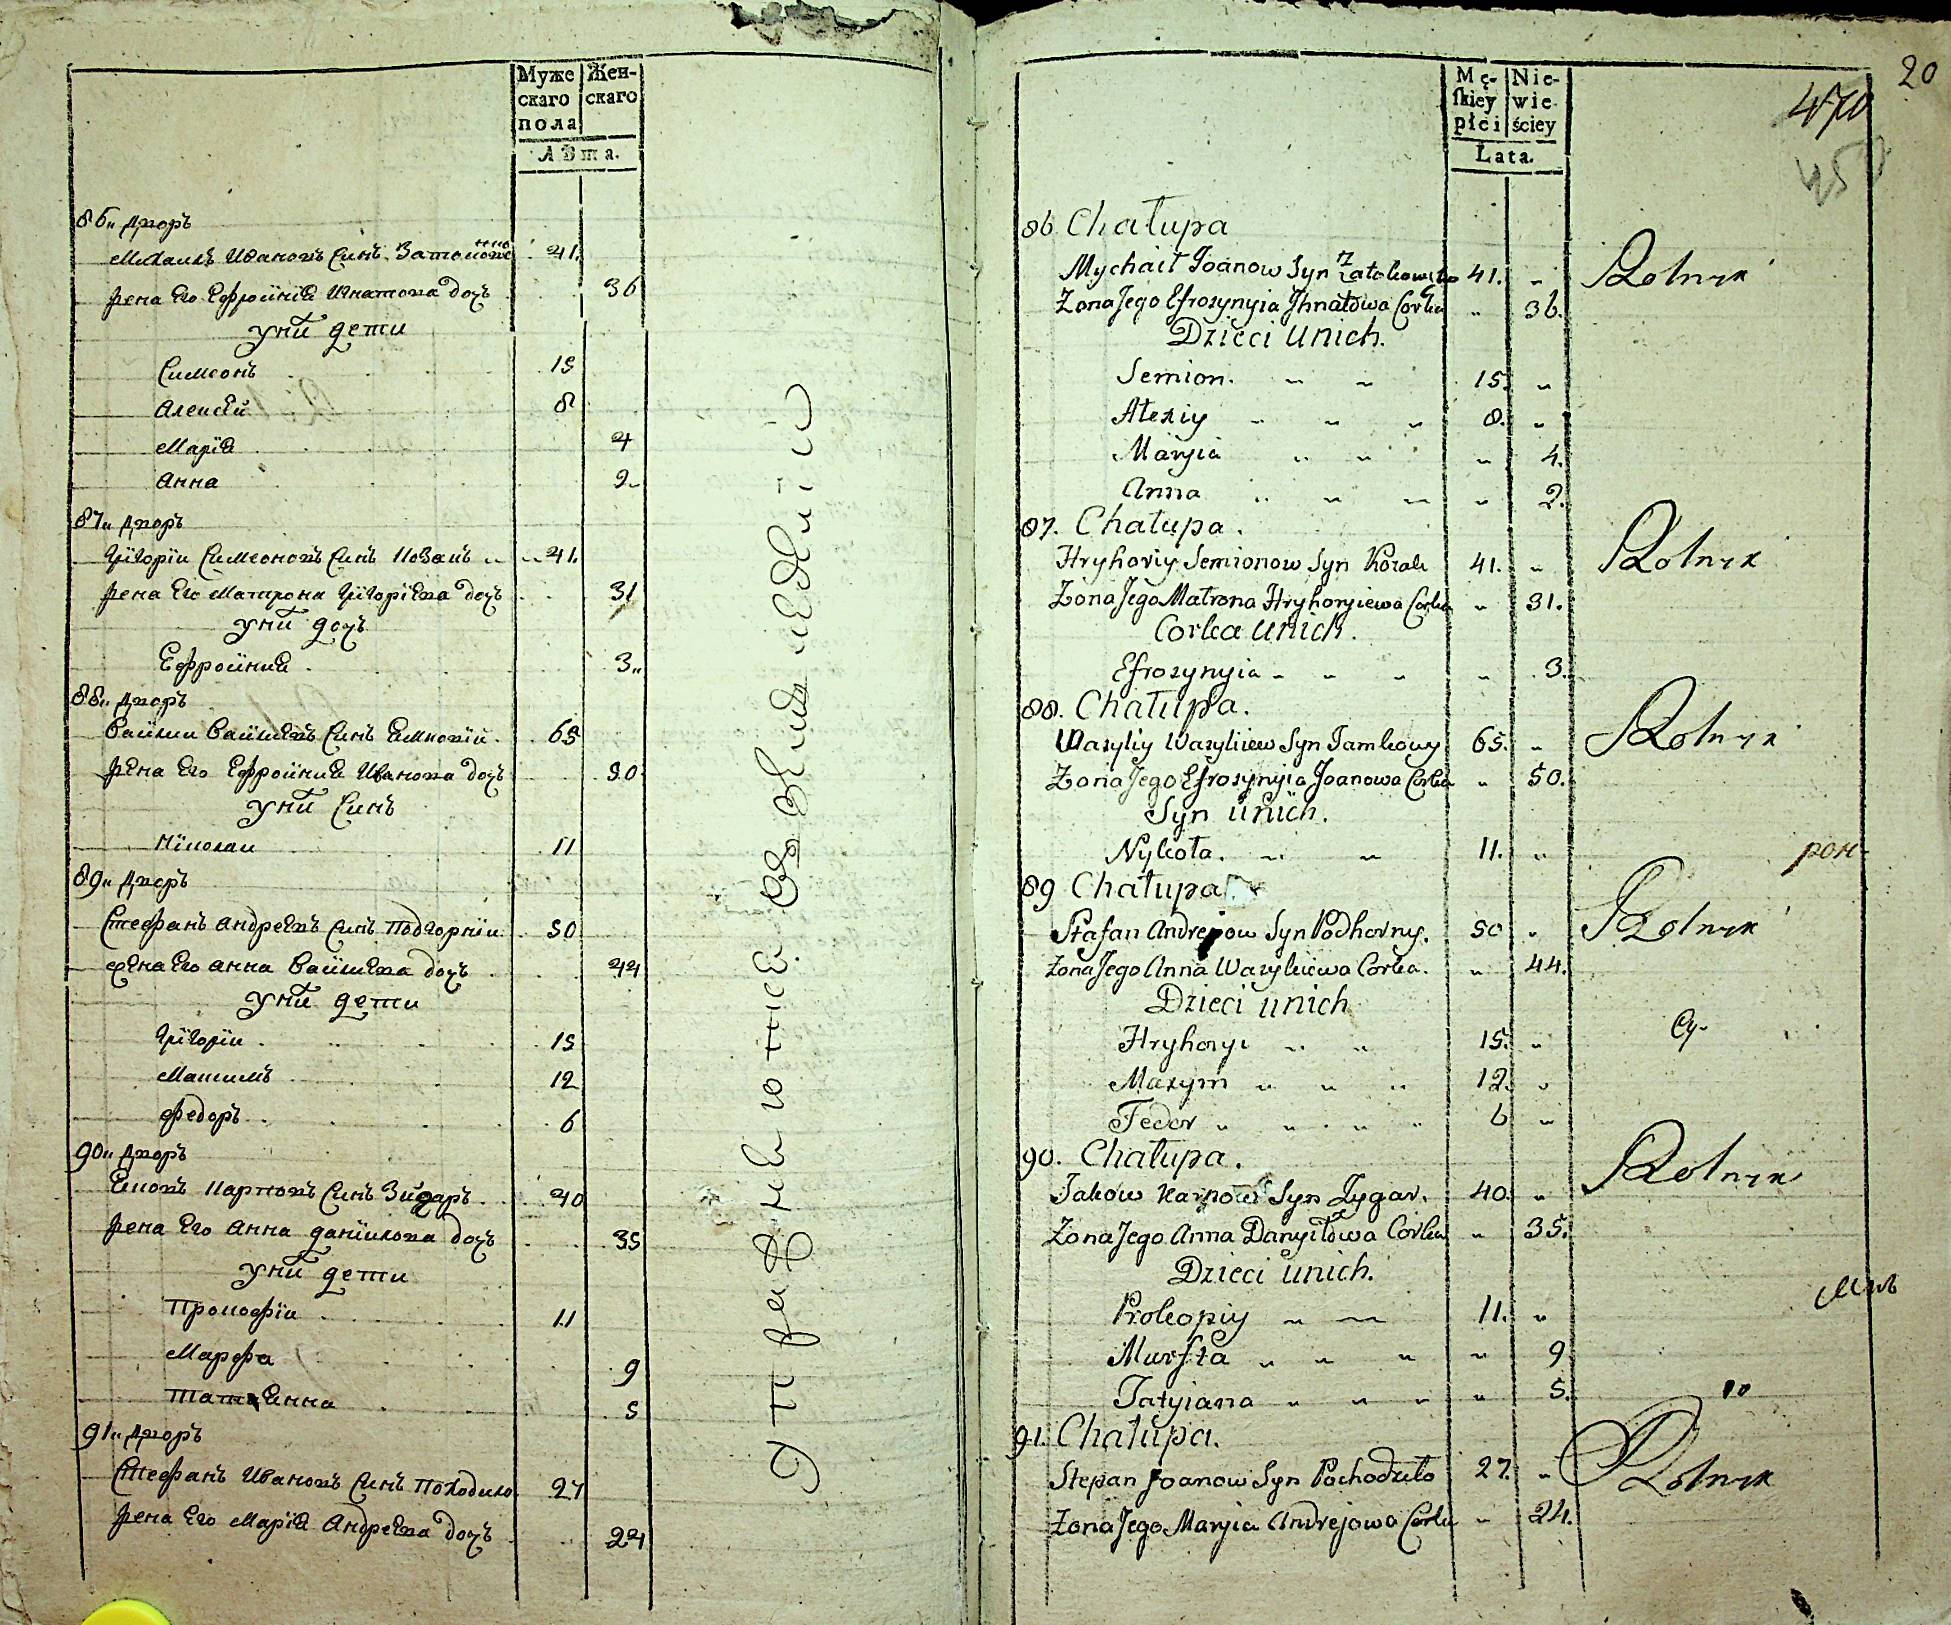 Муже
скаго
пола
Жен-
скаго
Лѣта.
86„ Дворъ
Михаилъ Ивановъ Синъ 41.
жена Его Ефросиния Игнатова дочь 36
у них дети
Симеонъ 15
Алексѣй 8
Мария 4
Анна 2
87„ Дворъ
Григории Симеоновъ Синъ Козакъ „ „ 41.
жена Его Матрона Григориева дочь 31
у них дочь
Ефросиния 3„
88„ Дворъ
Василии Василиевъ Синъ 65
жена Его Ефросиния Иванова дочь 50
у них Синъ
Николаи 11
89„ Дворъ
Стефанъ Андреевъ Синъ Подгорнии 50
жена Его Анна Василиева дочь 44
у них дети
Григории 15
Максимъ 12
Федоръ 6
90„ Дворъ
Яковъ Карповъ Синъ Зигаръ 40
жена Его Анна Данилова дочь 35
у них дети
Прокофии 11
Марфа 9
Татиянна 5
91„ Дворъ
Стефанъ Ивановъ Синъ Походило 27
жена Его Мария Андреева дочь 24
20
470
45
Mę-
skiey
płci
Nie-
wie-
ściey
Lata.
86 Chałupa
Mychaił Joanow Syn 41. „ Rolnik
Żona Jego Efrozynyia Jhnatowa Corka „ 36.
Dzieci u nich.
Semion. „ „ 15. „
Alexiy „ „ „ 8. „
Maryia „ „ „ 4.
Anna „ „ „ „ 2.
87. Chałupa.
Hryhoriy Semionow Syn Kozak 41. „ Rolnik
Żona Jego Matrona Hryhoryiewa Corka „ 31.
Corka u nich.
Efrozynyia „ „ „ „ 3.
88. Chałupa.
Wazyliy Wazyliiew Syn Jamkowy 65. „ Rolnik
Żona Jego Efrozynyia Joanowa Corka „ 50.
Syn u nich.
Nykoła. „ „ 11. „
рон-
89 Chałupa
Stafan Andrejow Syn Podhorny. 50 „ Rolnik
Żona Jego Anna Wazyliiewa Corka. „ 44.
Dzieci u nich
Hryhoryi „ „ 15. „
Су-
Maxym „ „ „ 12. „
Fedor „ „ „ „ 6 „
90. Chałupa.
Jakow Karpow Syn Zygar. 40. „ Rolnik
Żona Jego Anna Danyiłowa Corka „ 35.
Dzieci u nich.
Prokopiy „ „ 11. „
Marfta „ „ „ „ 9
Tatyiana „ „ „ „ 5.
91. Chałupa.
Stepan Joanow Syn Pochodziło 27. „ Rolnik
Żona Jego Maryia Andrejowa Corka „ 24.